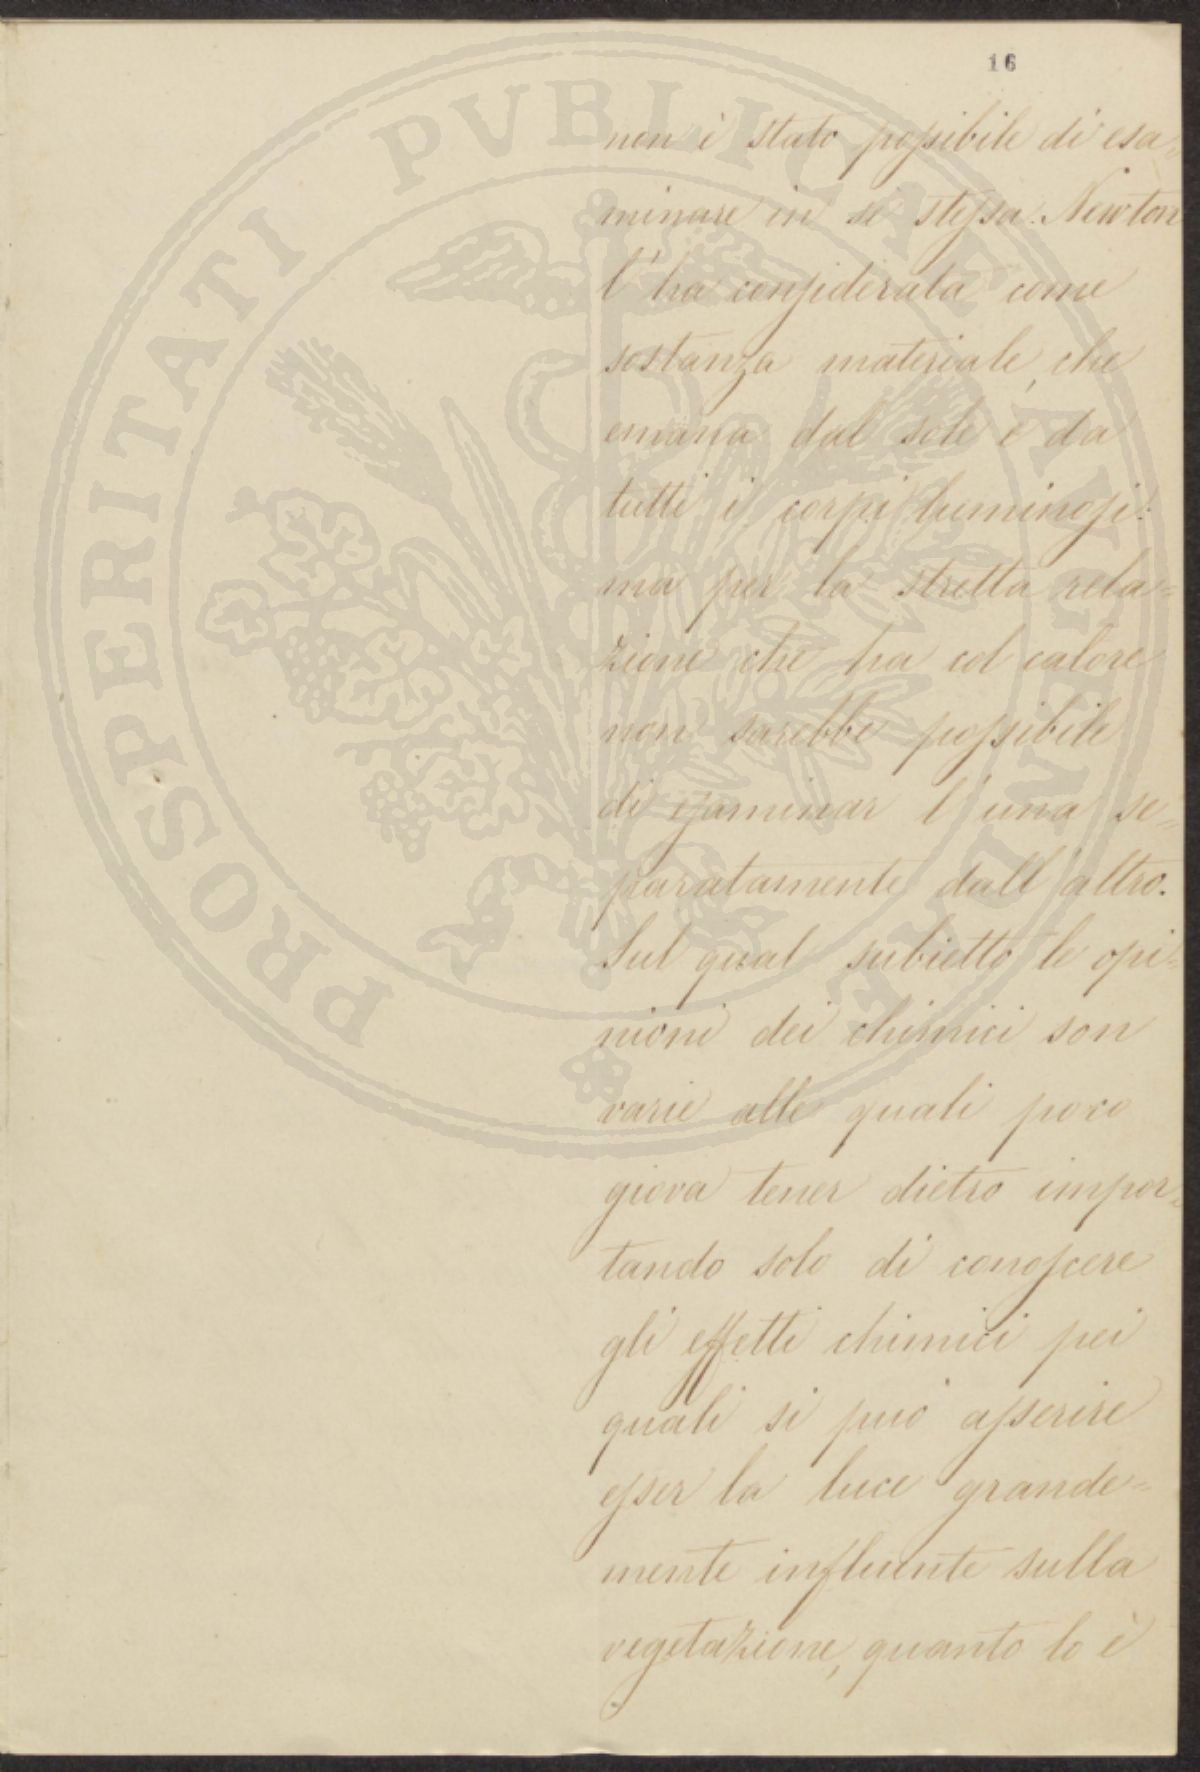 16
non è stato possibile di esa=
minare in se stessa. Newton
l'ha considerata come
sostanza materiale, che
emana dal sole e da
tutti i corpi luminosi:
ma per la stretta rela=
zione che ha col calore
non sarebbe possibile
di esaminar l'una se=
paratamente dall'altro.
Sul qual subietto le opi=
nioni dei chimici son
varie alle quali poco
giova tener dietro impor=
tando solo di conoscere
gli effetti chimici pei
quali si può asserire
esser la luce grande=
mente influente sulla
vegetazione, quanto lo è
PROSPERITATI PVBLICAE AVGENDAE